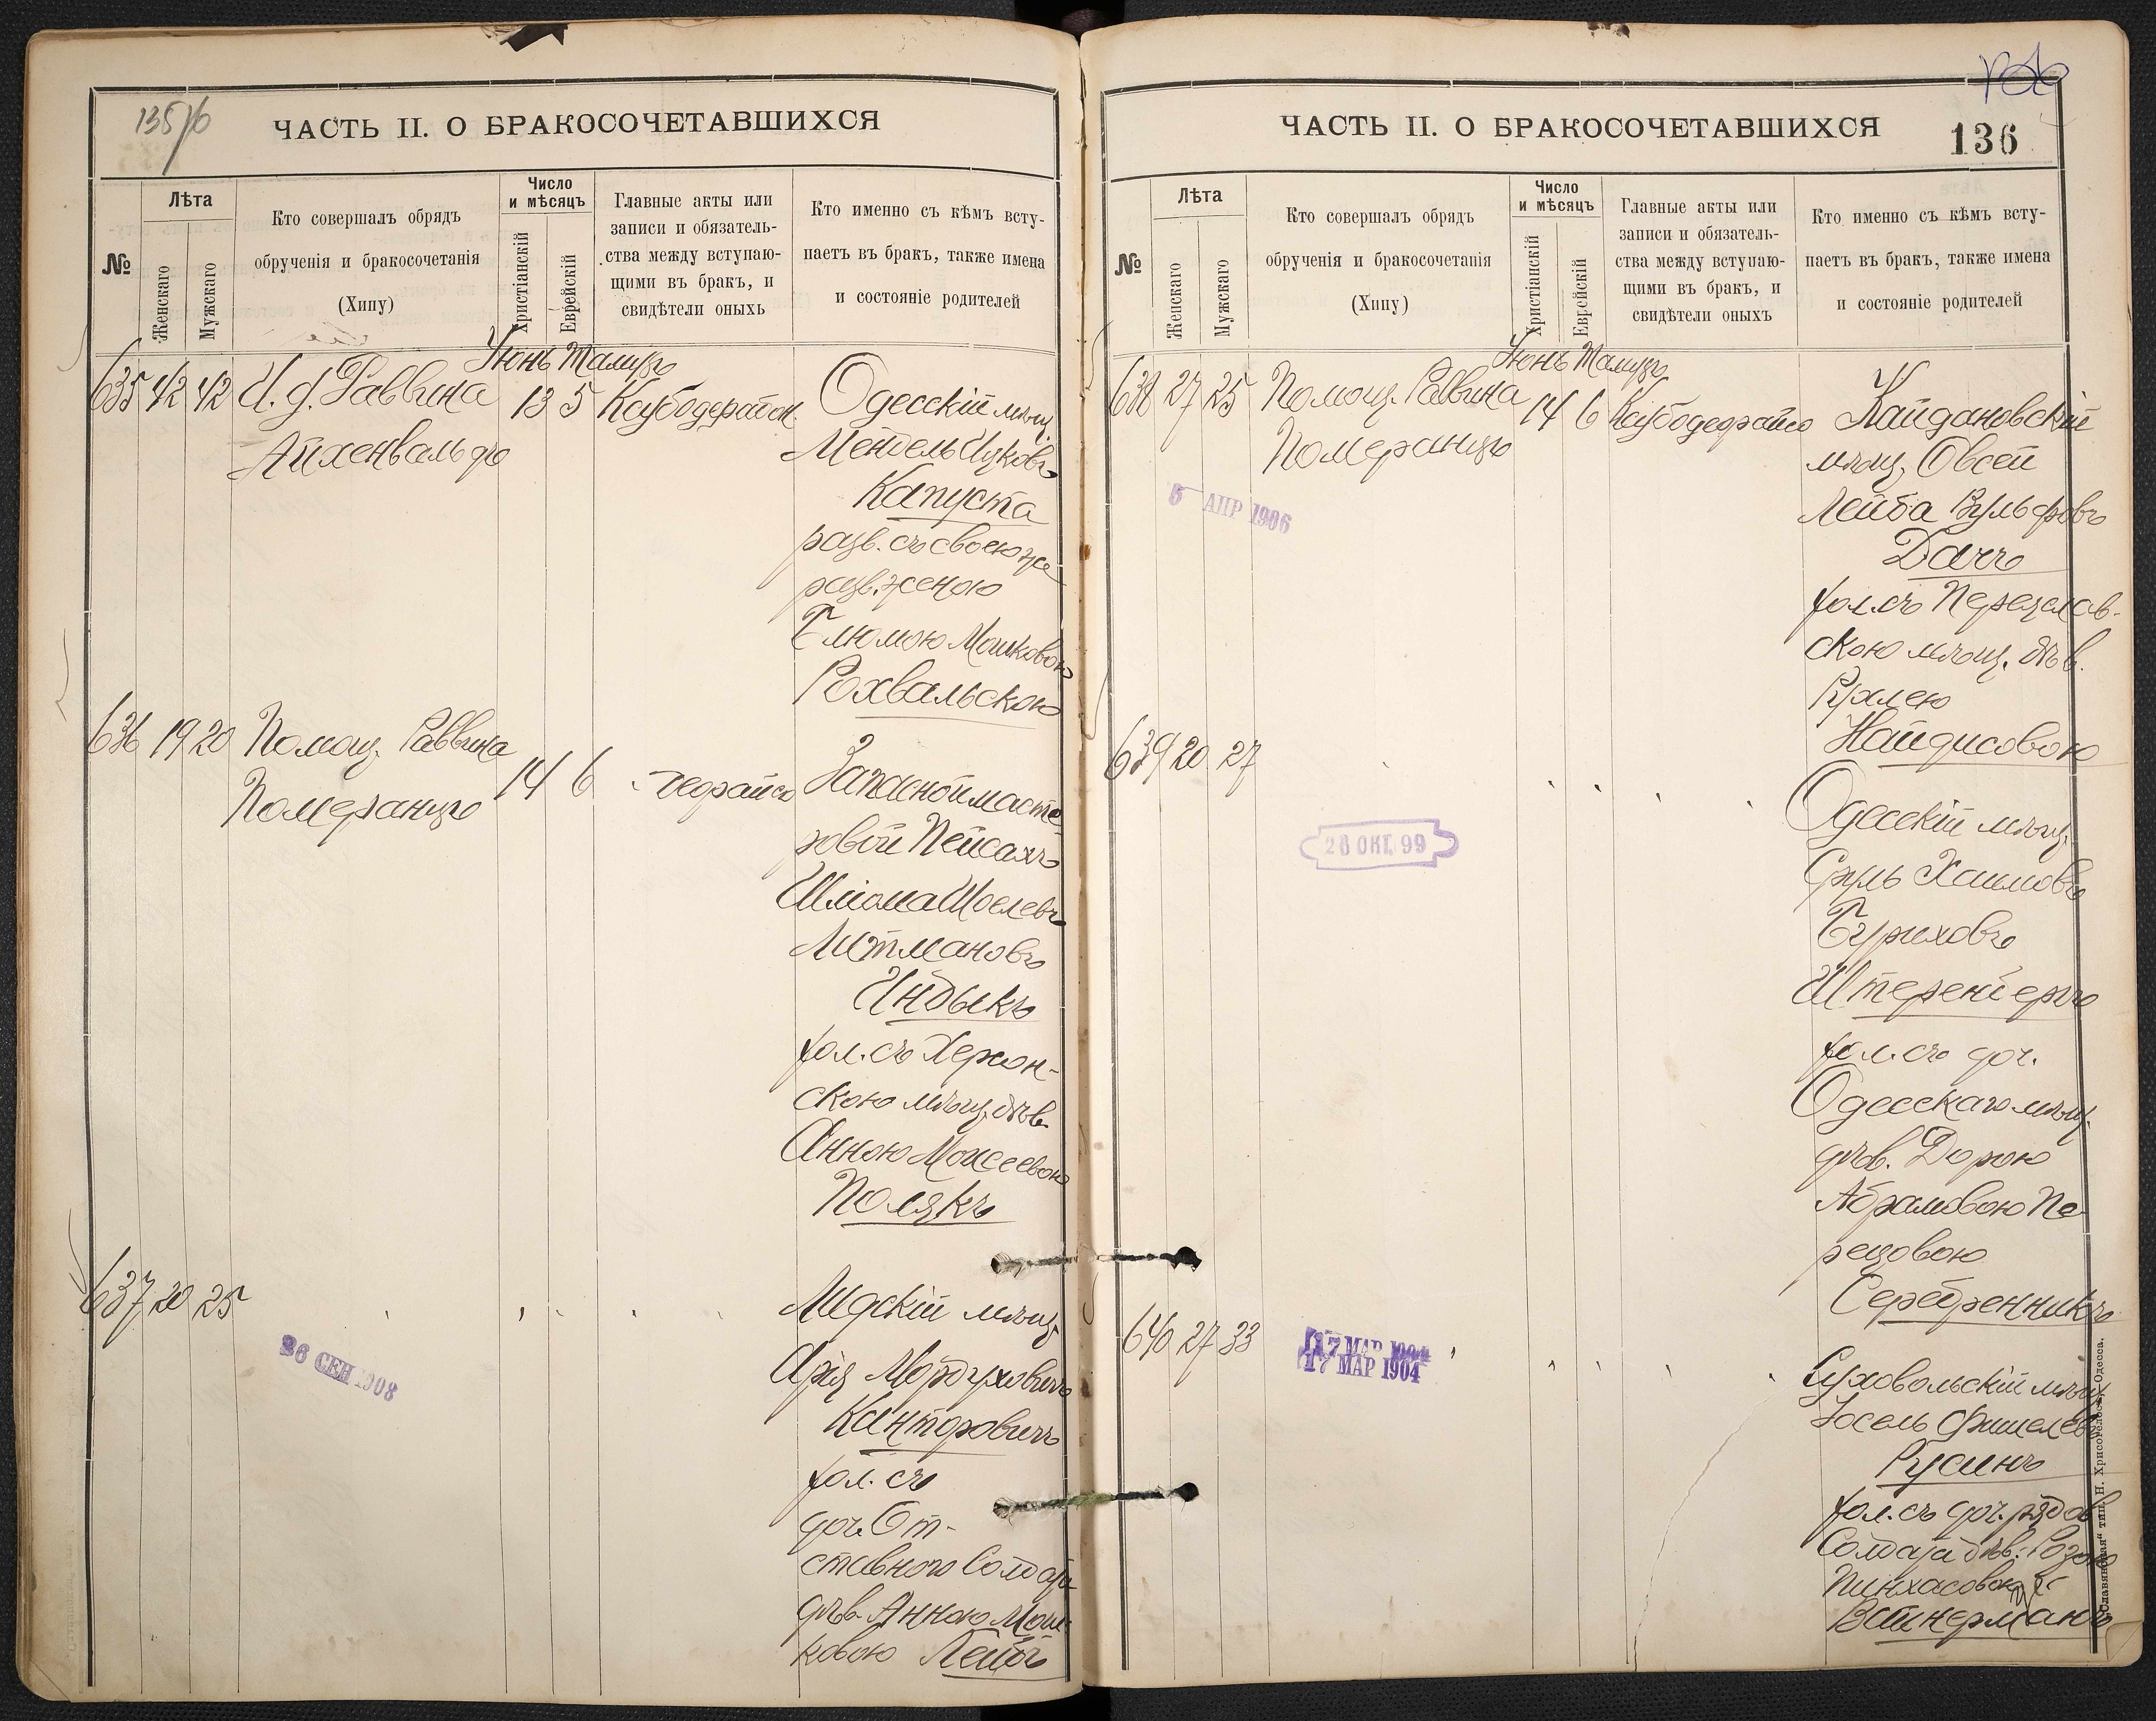 135/б
ЧАСТЬ II. О БРАКОСОЧЕТАВШИХСЯ
№
Лѣта
Женскаго
Мужскаго
Кто совершалъ обрядъ
обрученія и бракосочетанія
(Хипу)
Число
и мѣсяцъ
Христіанскій
Еврейскій
Главные акты или
записи и обязатель-
ства между вступаю-
щими въ бракъ, и
свидѣтели оныхъ
Кто именно съ кѣмъ всту-
паетъ въ бракъ, также имена
и состояніе родителей
Іюнь Тамузъ
635 42 42 И. д. Раввина 13 5 Одесскій мѣщ.
Айхенвальдъ
Мендель Ицковъ
Капуста
разв. съ своею же
разв. женою
Блюмою Мошковою
Рохвальскою
636 19 20 Помощ. Раввина 14 6
Померанцъ
Запасной масте-
ровой Пейсахъ
Шліома Шоелевъ
Литмановъ
Индыкъ
хол. съ Херсон-
скою мѣщ. дѣв.
Анною Моисеевою
Полякъ
637 20 25
Лидскій мѣщ.
Арія Мордуховичъ
Канторовичъ
хол. съ
доч. От-
ставного Солдата
дѣв. Анною Мош-
ковою Лейбъ
26 СЕН 1908
ЧАСТЬ II. О БРАКОСОЧЕТАВШИХСЯ
136
№
Лѣта
Женскаго
Мужскаго
Кто совершалъ обрядъ
обрученія и бракосочетанія
(Хипу)
Число
и мѣсяцъ
Христіанскій
Еврейскій
Главные акты или
записи и обязатель-
ства между вступаю-
щими въ бракъ, и
свидѣтели оныхъ
Кто именно съ кѣмъ всту-
паетъ въ бракъ, также имена
и состояніе родителей
Іюнь Тамузъ
638 27 25 Помощ. Раввина 14 6 Кайдановскій
Померанцъ
мѣщ. Овсей
Лейба Вульфовъ
Дачъ
хол. съ Переяслав-
скою мѣщ. дѣв.
Найдисовою
5 АПР 1906
639 20 27
Одесскій мѣщ.
Сруль Хаимовъ
Буриховъ
Штеренгерцъ
хол. съ доч.
Одесскаго мѣщ.
дѣв. Дорою
Абрамовою Пе-
рецовою
Серебренникъ
26 ОКТ. 99
640 27 33
Суховольскій мѣщ.
Іосель Фишелевъ
Русинъ
хол. съ доч. рядов.
Солдата дѣв. Розою
Пинхасовою
Вайнерманъ
17 МАР 1904
17 МАР 1904
„Славянская" тип. Н. Хрисогелосъ, Одесса.